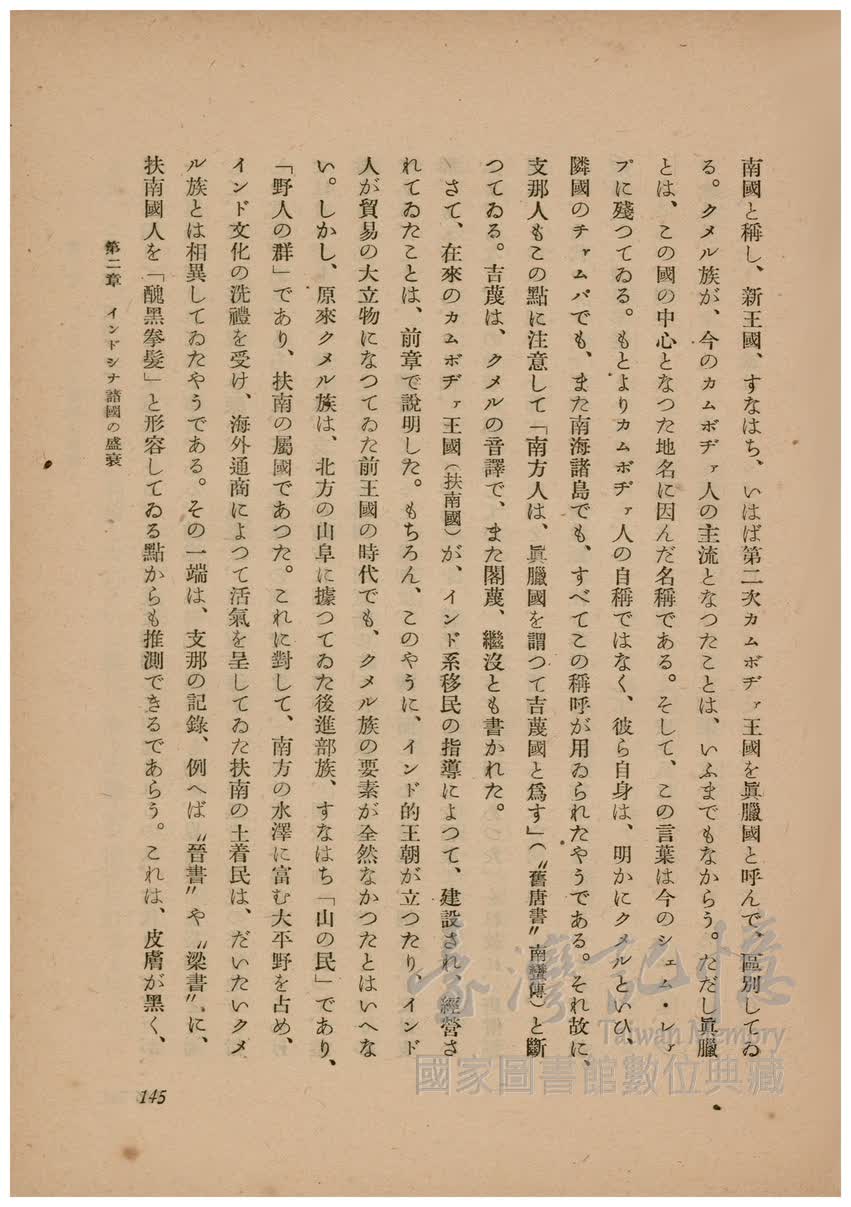 南國と稱し、新王國、すなはち、いはば第二次カムボヂァ王國を眞臘國と呼んで、區別してゐ
る。クメル族が、今のカムボヂァ人の主流となつたことは、いふまでもなからう。ただし眞臘
とは、この國の中心となつた地名に因んだ名稱である。そして、この言葉は今のシェム・レァ
プに殘つてゐる。もとよりカムボヂァ人の自稱ではなく、彼ら自身は、明かにクメルといひ、
隣國のチァムパでも、また南海諸島でも、すべてこの稱呼が用ゐられたやうである。それ故に、
支那人もこの點に注意して「南方人は、眞臘國を謂つて吉蔑國と爲す」(〝舊唐書〟南蠻傳)と斷
つてゐる。吉蔑は、クメルの音譯で、また閣蔑、繼沒とも書かれた。
さて、在來のカムボヂァ王國(扶南國)が、インド系移民の指導によつて、建設され、經營さ
れてゐたことは、前章で說明した。もちろん、このやうに、インド的王朝が立つたり、インド
人が貿易の大立物になつてゐた前王國の時代でも、クメル族の要素が全然なかつたとはいへな
い。しかし、原來クメル族は、北方の山阜に據つてゐた後進部族、すなはち「山の民」であり、
「野人の群」であり、扶南の屬國であつた。これに對して、南方の水澤に富む大平野を占め、
インド文化の洗禮を受け、海外通商によつて活氣を呈してゐた扶南の土着民は、だいたいクメ
ル族とは相異してゐたやうである。その一端は、支那の記錄、例へば〝晉書〟や〝梁書〟に、
扶南國人を「醜黑拳髮」と形容してゐる點からも推測できるであらう。これは、皮膚が黑く、
第二章 インドシナ諸國の盛衰
145
臺灣記憶
Taiwan Memory
國家圖書館數位典藏